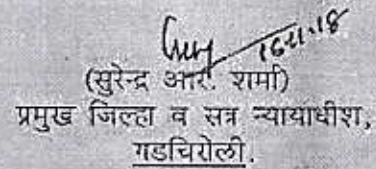 16.11.18
(सुरेन्द्र आर. शर्मा)
प्रमुख जिल्हा व सत्र न्यायाधीश,
गडचिरोली.